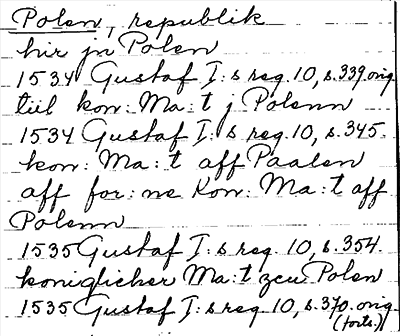 Polen, republik
hir jn Polen
1534 Gustaf I:s reg. 10, s. 339. orig.
till kon: Ma:t j Polenn
1534 Gustaf I:s reg. 10, s. 345.
kon: Ma:t aff Paalen
aff for:ne Kon: Ma:t aff
Polenn
1535 Gustaf I:s reg. 10, s. 354.
koniglicher Ma:t zcu Polen
1535 Gustaf I:s reg. 10, s. 370. orig.
(forts.)